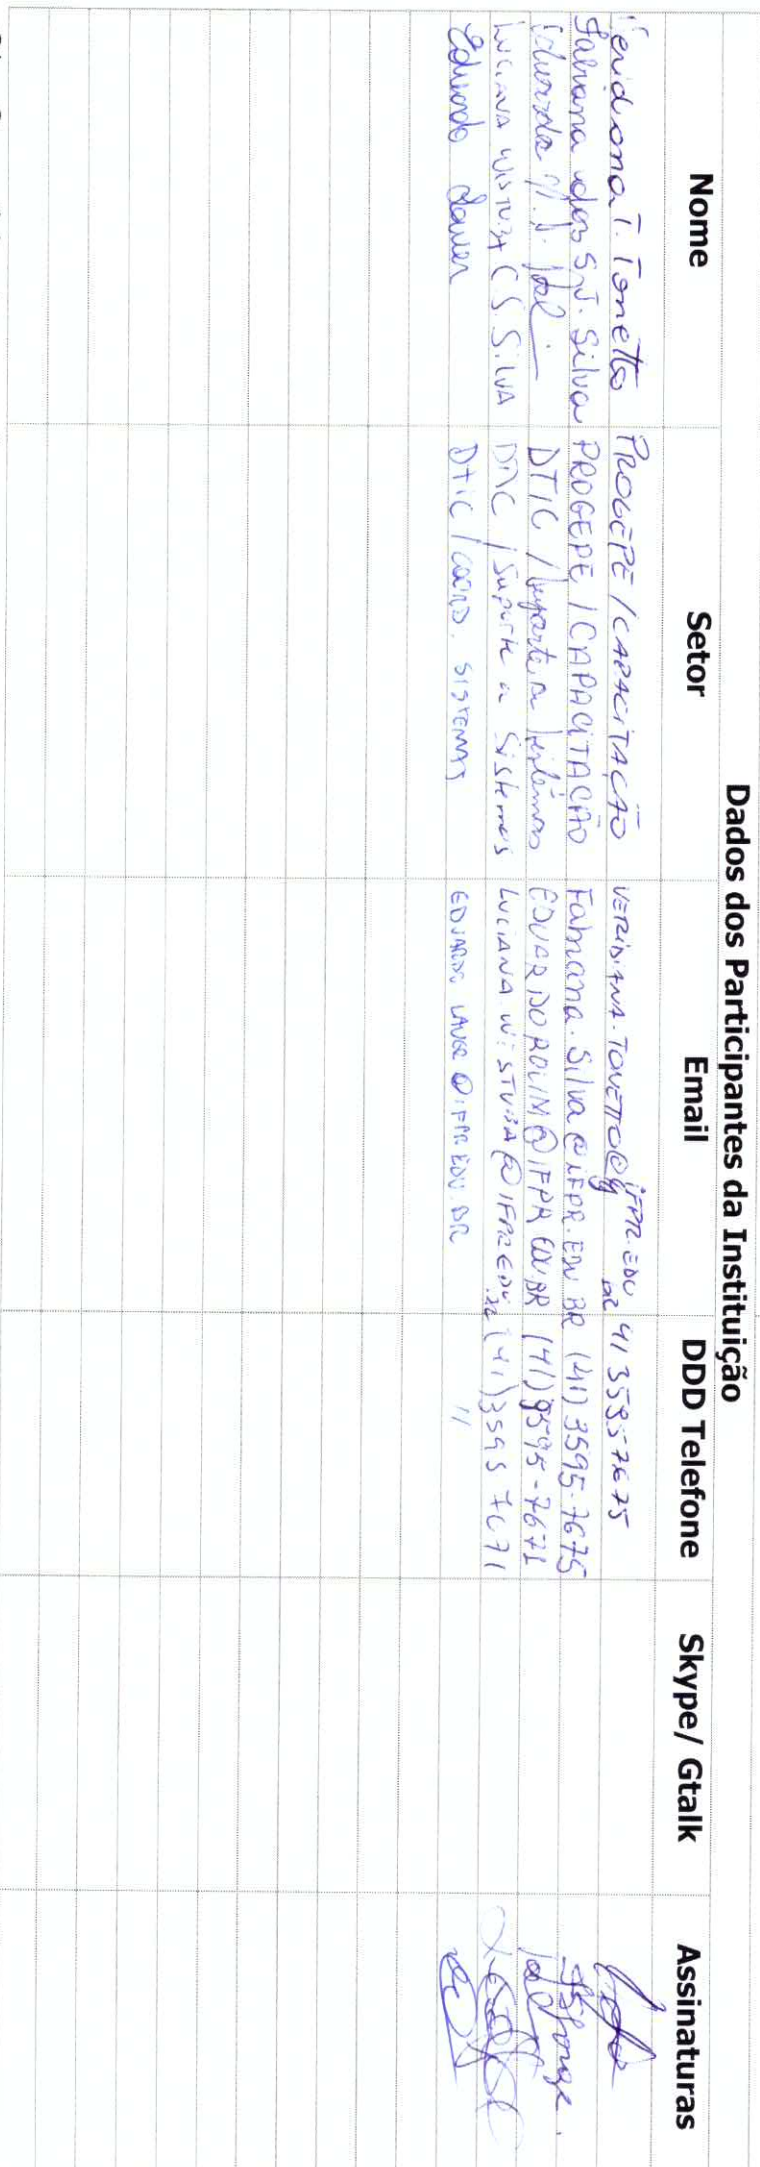 Dados dos Participantes da Instituição
Nome Setor Email DDD Telefone Skype/ Gtalk Assinaturas
Veridiana T. Tonetto PROGEPE / CAPACITAÇÃO VERIDIANA.TONETTO@ IFPR.EDU BR 41 35957675
Fabiana dos S.J. Silva PROGEPE / CAPACITAÇÃO Fabiana.Silva@IFPR.EDU BR (41) 3595-7675
DTIC / Suporte a Sistemas EDUARDOROLIM@IFPR.EDU.BR (41) 3595-7671
LUCIANA WISTUBA C S. SILVA DTIC / Suporte a Sistemas LUCIANA WISTUBA@IFPR EDU .BR (41) 3595 7671
Eduardo Lauer DTIC / COORD. SISTEMAS EDUARDO LAUER @IFPR EDU.BR //